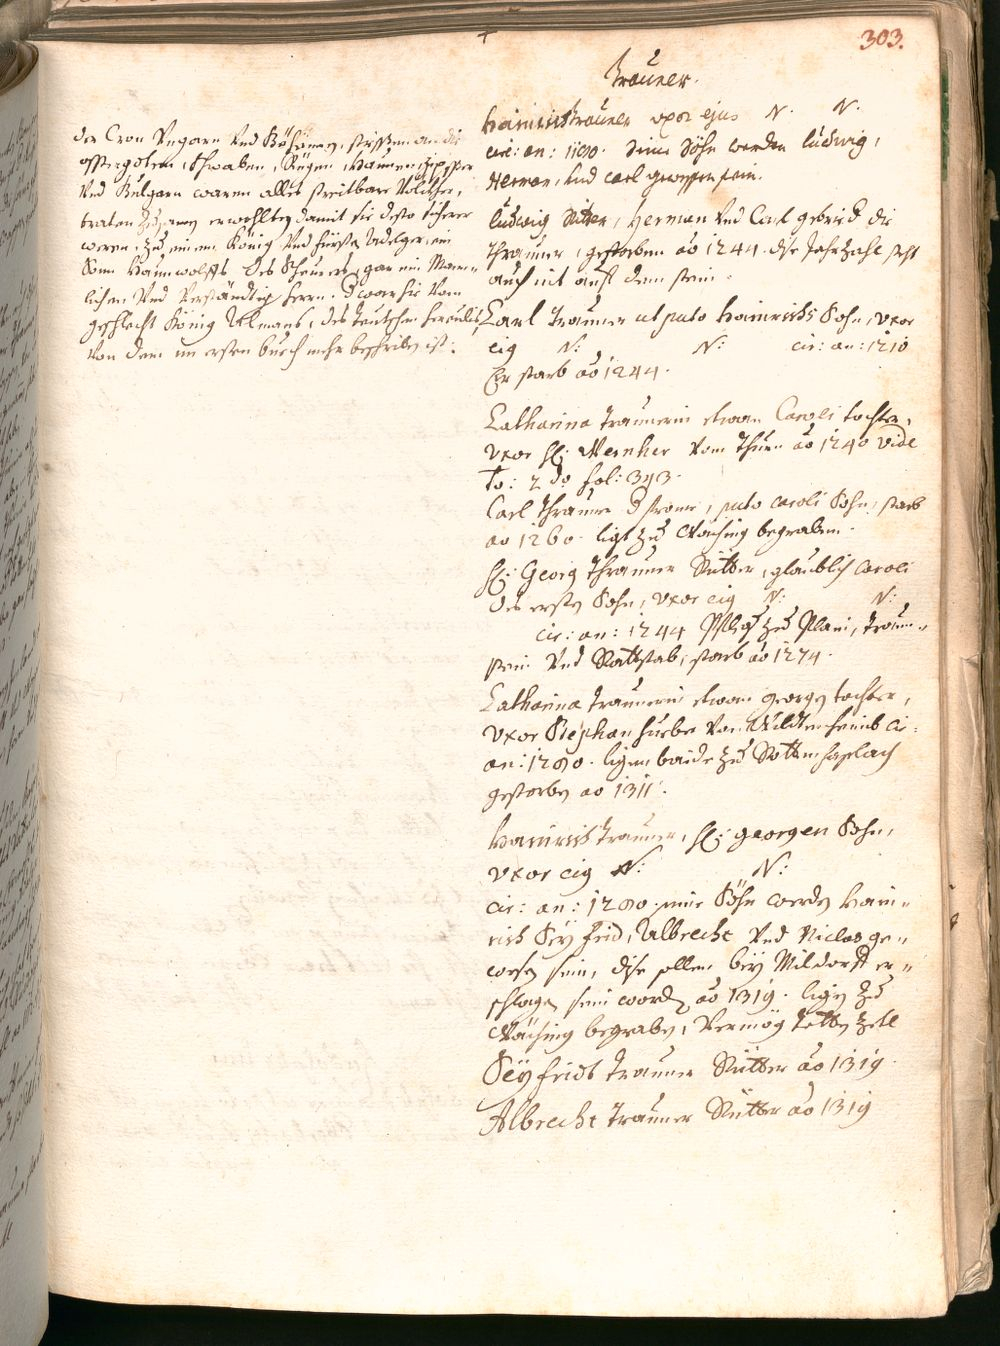 303.
Trauner.
der Cron Ungarn und Böhämen, stiessen an die
osstergoten, Schwaben, Rügen, Haunen, Gepper
und Bulgarn waren alles streitbare Völckher,
traten zusamen erwöllten damit sie desto sicherer
weren, zu einem König und Fürsten Adelger, ein
Sohn Haunwolffs des Scheuers, gar ein Män-
lichen und verständtig herrn. D war hie vom
geschlecht König Allmans, des Teutschen herculis
von dem im ersten buch mehr beschriben ist.
Hainrich Trauner uxor ejus N: N:
cir: an: 1190. Seine Söhn werden Ludwig,
Herman, und Carl gewessen sein.
Ludwig Ritter, Herman und Carl gebried die
Thrauner, gestorben ao 1244. dise Jahrzahl steht
auch nit auf dem stein.
Carl Trauner ut puto Hainrichs Sohn, uxor
eig N: N: cir: an: 1210
Er starb ao 1244.
Catharina Traunerin etwan Caroli tochter,
uxor H: Wernher vom Thurn ao 1240 vide
to: 2do fol: 393.
Carl Thrauner D strome, puto Caroli Sohn, starb
ao 1260. ligt zu begraben.
H: Georg Thrauner Ritter, glaublich Caroli
des ersten Sohn, uxor eig N: N:
cir: an: 1244 Pfleger zu Plain, Traun-
stein und Rattstab, starb ao 1274.
Catharina Traunerin etwan Georgen tochter,
uxor Stephan von Wildten cir:
an: 1280. ligen baide zu Rottenhaslach
gestorben ao 1311.
Hainrich Trauner, H: Georgen Sohn,
uxor eig N: N:
cir: an: 1280. seine Söhn werden Hain-
rich Seyfrid, Albrecht und Niclas ge-
wesen sein, dise sollen bey Mildorff er-
schlagen sein worden ao 1319. ligen zu
begraben, vermög
Seyfridt Trauner Ritter ao 1319.
Albrecht Trauner Ritter ao 1319